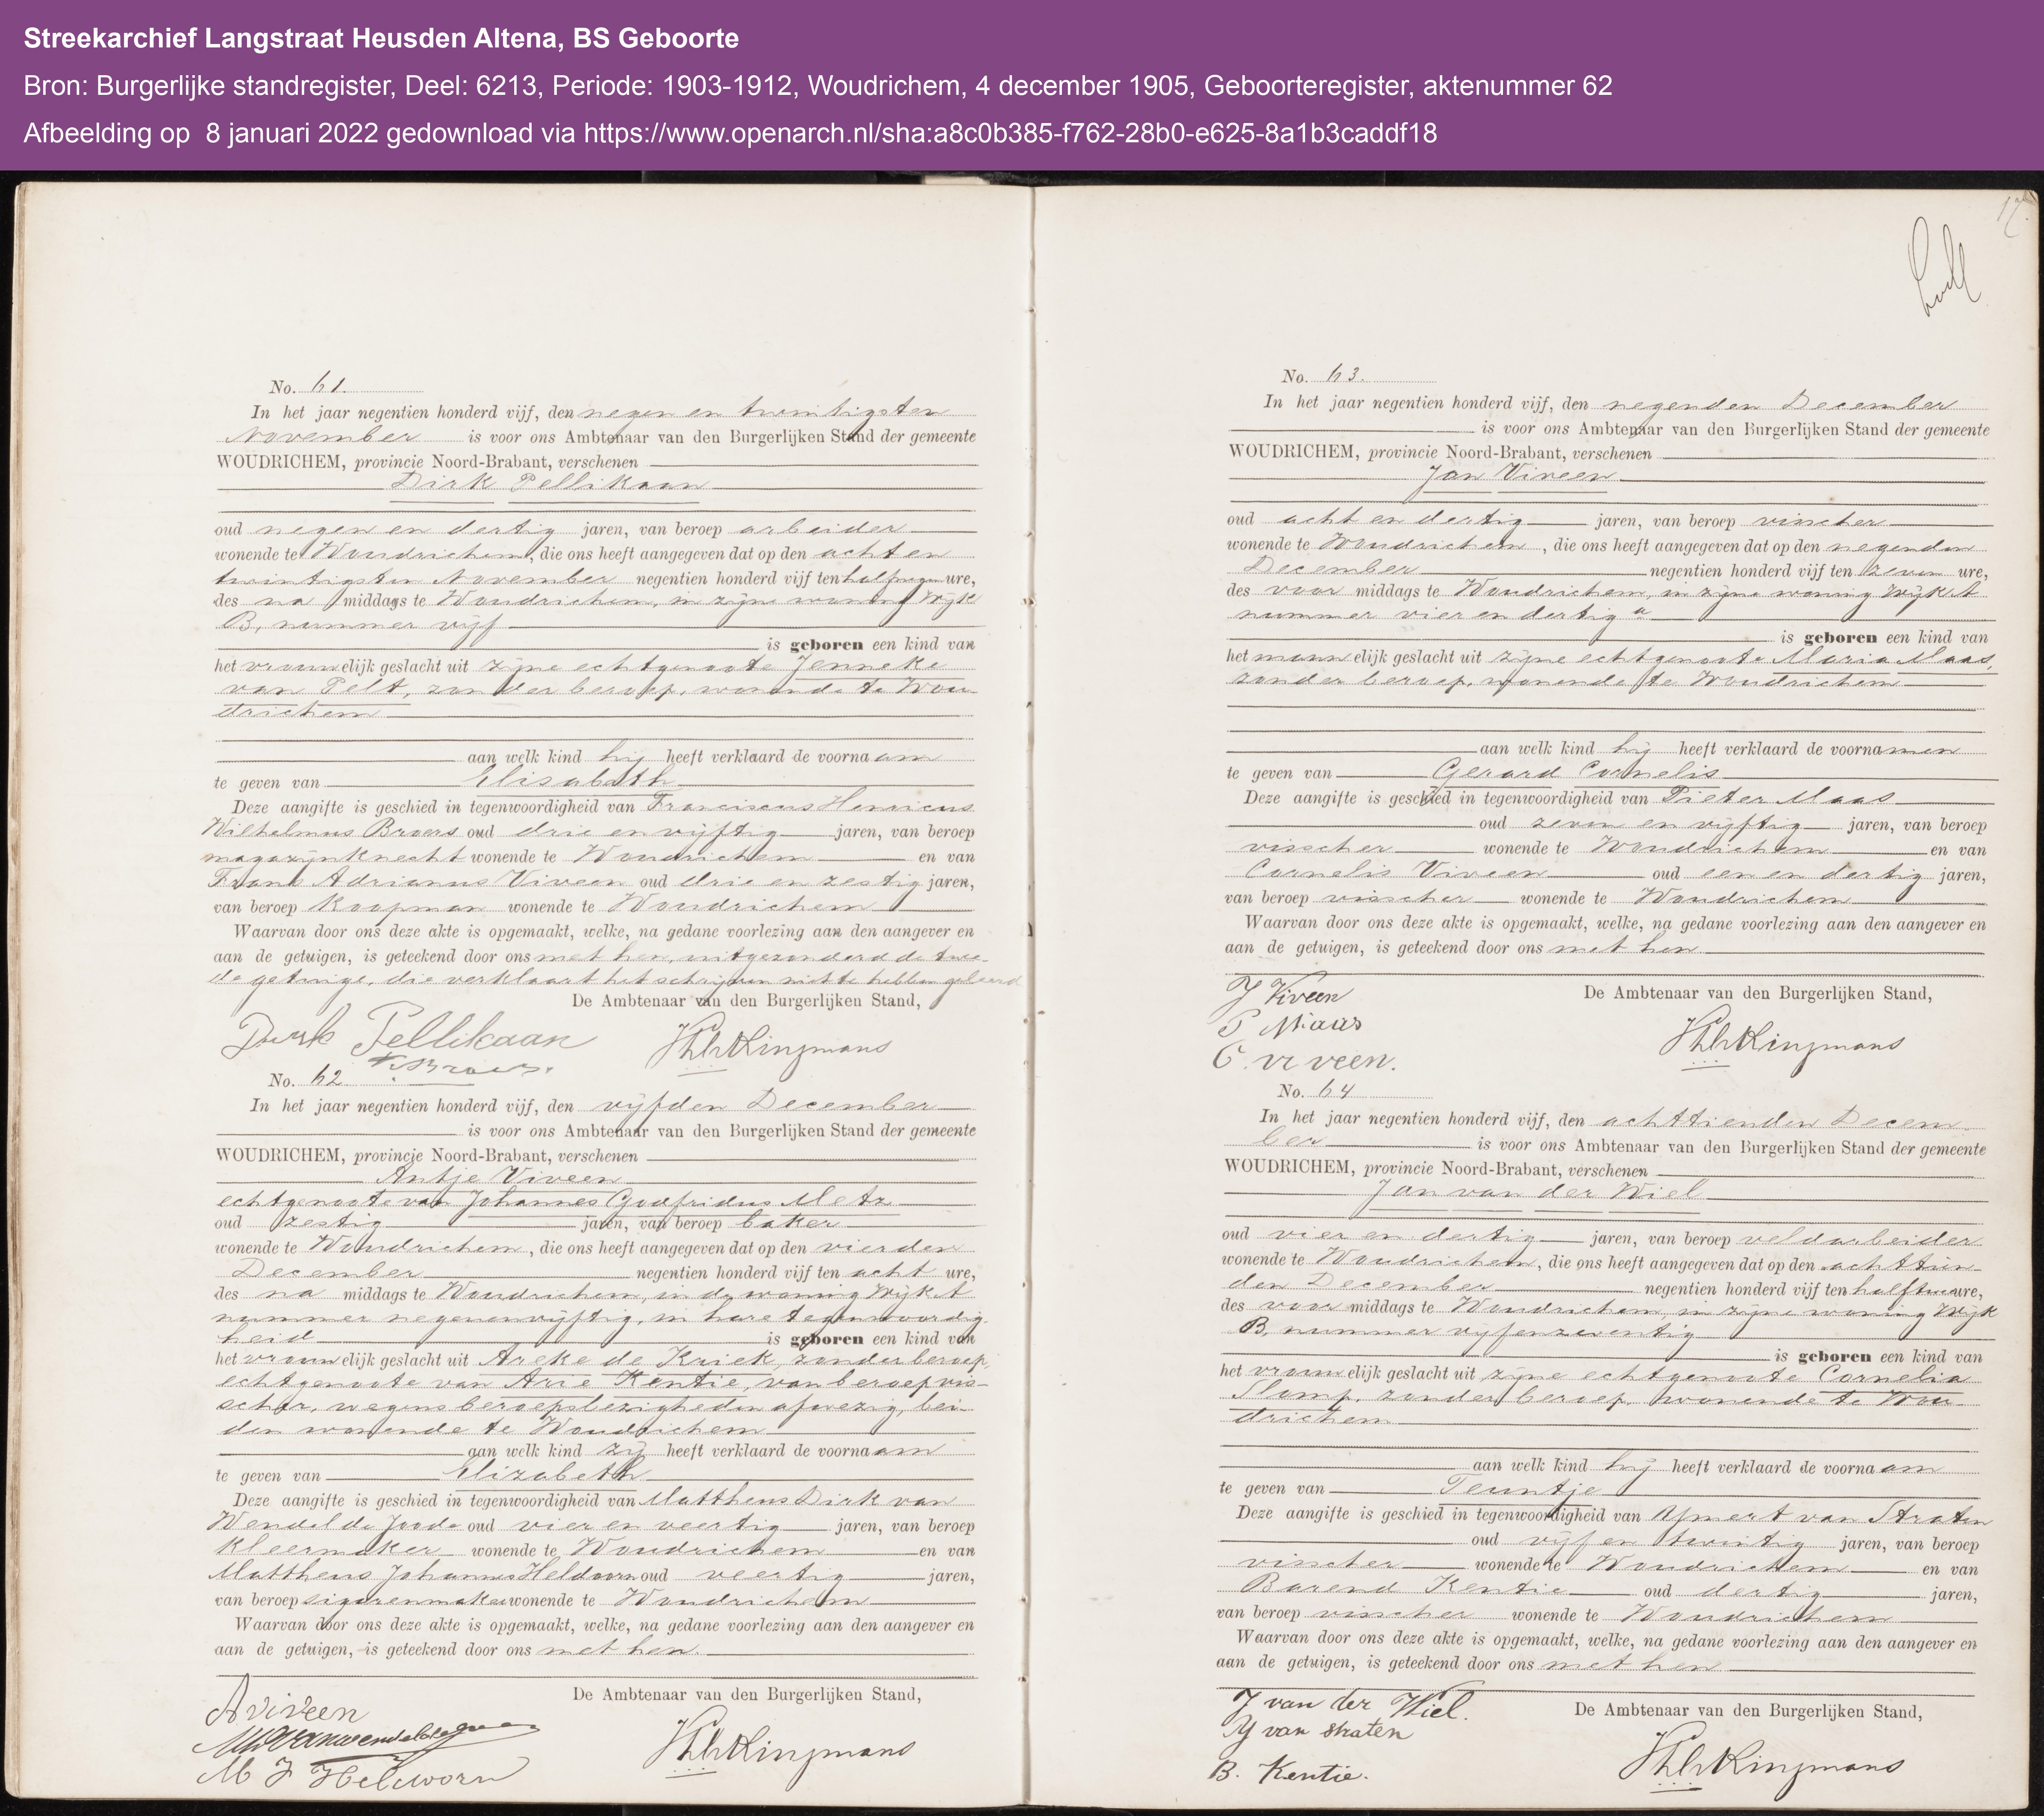 Streekarchief Langstraat Heusden Altena, BS Geboorte
Bron: Burgerlijke standregister, Deel: 6213, Periode: 1903-1912, Woudrichem, 4 december 1905, Geboorteregister, aktenummer 62
Afbeelding op 8 januari 2022 gedownload via https://www.openarch.nl/sha:a8c0b385-f762-28b0-e625-8a1b3caddf18
No. 61.
In het jaar negentien honderd vijf, den negen en twintigsten
November is voor ons Ambtenaar van den Burgerlijken Stand der gemeente
WOUDRICHEM, provincie Noord-Brabant, verschenen
Dirk Pellikaan
oud negen en dertig jaren, van beroep arbeider
wonende te Woudrichem, die ons heeft aangegeven dat op den achten
twintigsten November negentien honderd vijf ten half negen ure,
des na middags te Woudrichem, in zijne woning Wijk
B, nummer vijf
is geboren een kind van
het vrouwelijk geslacht uit zijne echtgenoote Jenneke
van Pelt, zonder beroep, wonende te Wou-
drichem
aan welk kind hij heeft verklaard de voornaam
te geven van Elisabeth
Deze aangifte is geschied in tegenwoordigheid van Franciscus Henricus
Wilhelmus Broers oud drie en vijftig jaren, van beroep
magazijnknecht wonende te Woudrichem en van
Frans Adrianus Viveen oud drie en zestig jaren,
van beroep koopman wonende te Woudrichem
Waarvan door ons deze akte is opgemaakt, welke, na gedane voorlezing aan den aangever en
aan de getuigen, is geteekend door ons met hen, uitgezonderd de twee-
de getuige, die verklaart het schrijven niet te hebben geleerd
De Ambtenaar van den Burgerlijken Stand,
Dirk Pellikaan
Broers.
No. 62
In het jaar negentien honderd vijf, den vijfden December
is voor ons Ambtenaar van den Burgerlijken Stand der gemeente
WOUDRICHEM, provincie Noord-Brabant, verschenen
Antje Viveen
echtgenoote van Johannes Godfridus Metz
oud zestig jaren, van beroep baker
wonende te Woudrichem, die ons heeft aangegeven dat op den vierden
December negentien honderd vijf ten acht ure,
des na middags te Woudrichem, in de woning Wijk A
nummer negenenvijftig, in hare tegenwoordig-
heid is geboren een kind van
het vrouwelijk geslacht uit Areke de Kriek, zonder beroep,
echtgenoote van Arie Kentie, van beroep vis-
scher, wegens beroepsbezigheden afwezig, bei-
den wonende te Woudrichem
aan welk kind zij heeft verklaard de voornaam
te geven van Elizabeth
Deze aangifte is geschied in tegenwoordigheid van Mattheus Dirk van
Wendel de Joode oud vier en veertig jaren, van beroep
kleermaker wonende te Woudrichem en van
Mattheus Johannes Heldoorn oud veertig jaren,
van beroep sigarenmaker wonende te Woudrichem
Waarvan door ons deze akte is opgemaakt, welke, na gedane voorlezing aan den aangever en
aan de getuigen, is geteekend door ons met hen.
De Ambtenaar van den Burgerlijken Stand,
A viveen
M J Heldoorn
17.
No. 63.
In het jaar negentien honderd vijf, den negenden December
is voor ons Ambtenaar van den Burgerlijken Stand der gemeente
WOUDRICHEM, provincie Noord-Brabant, verschenen
Jan Viveen
oud acht en dertig jaren, van beroep visscher
wonende te Woudrichem, die ons heeft aangegeven dat op den negenden
December negentien honderd vijf ten zeven ure,
des voor middags te Woudrichem, in zijne woning Wijk A
nummer vier en dertig a
is geboren een kind van
het mannelijk geslacht uit zijne echtgenoote Maria Maas,
zonder beroep, wonende te Woudrichem
aan welk kind hij heeft verklaard de voornamen
te geven van Gerard Cornelis
Deze aangifte is geschied in tegenwoordigheid van Pieter Maas
oud zeven en vijftig jaren, van beroep
visscher wonende te Woudrichem en van
Cornelis Viveen oud een en dertig jaren,
van beroep visscher wonende te Woudrichem
Waarvan door ons deze akte is opgemaakt, welke, na gedane voorlezing aan den aangever en
aan de getuigen, is geteekend door ons met hen
De Ambtenaar van den Burgerlijken Stand,
J Viveen
P Maas
C. viveen.
No. 64
In het jaar negentien honderd vijf, den achttienden Decem-
ber is voor ons Ambtenaar van den Burgerlijken Stand der gemeente
WOUDRICHEM, provincie Noord-Brabant, verschenen
Jan van der Wiel
oud vier en dertig jaren, van beroep veldarbeider
wonende te Woudrichem, die ons heeft aangegeven dat op den achttien-
den December negentien honderd vijf ten half twee ure,
des voor middags te Woudrichem, in zijne woning Wijk
B, nummer vijfenzeventig
is geboren een kind van
het vrouwelijk geslacht uit zijne echtgenoote Cornelia
Slomp, zonder beroep, wonende te Wou-
drichem
aan welk kind hij heeft verklaard de voornaam
te geven van Teuntje
Deze aangifte is geschied in tegenwoordigheid van IJsmert van Straten
oud vijf en twintig jaren, van beroep
visscher wonende te Woudrichem en van
Barend Kentie oud dertig jaren,
van beroep visscher wonende te Woudrichem
Waarvan door ons deze akte is opgemaakt, welke, na gedane voorlezing aan den aangever en
aan de getuigen, is geteekend door ons met hen
De Ambtenaar van den Burgerlijken Stand,
J van der Wiel.
IJ van straten
B. Kentie.